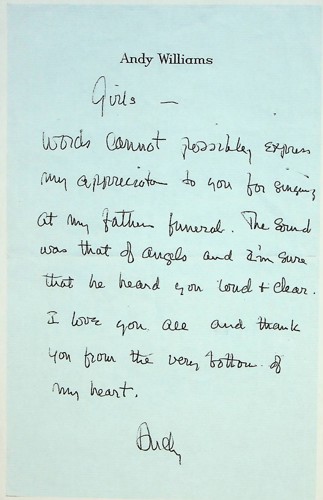 Andy Williams
Girls —
Words cannot possibley express
my appreciaton to you for singing
at my fathers funeral. The Sound
was that of angels and I'm sure
that he heard you loud + clear.
I love you all and thank
you from the very bottom of
my heart.
Andy